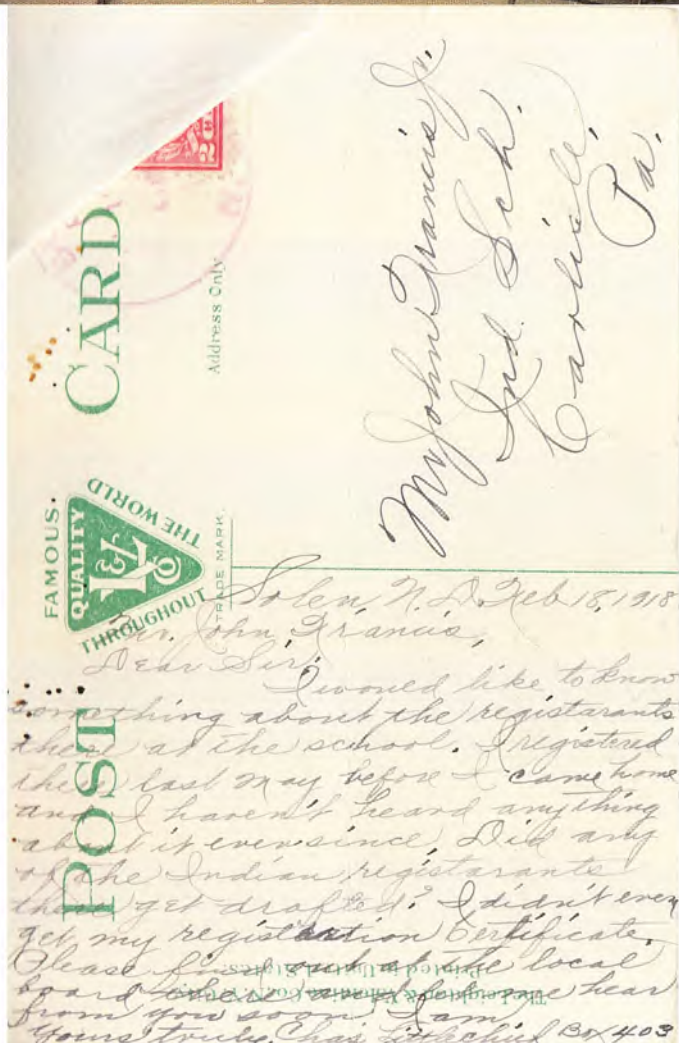 POST CARD
FAMOUS
QUALITY
L&V Co
THROUGHOUT THE WORLD
TRADE MARK.
Address Only
Mr John Francis Jr.
Ind. Sch.
Carlisle,
Pa.
Solen, N.D. Feb 18, 1918
Mr. John Francis,
Dear Sir:
I would like to know
something about the registarants
there at the school. I registered
there last May before I came home
and I haven't heard anything
about it ever since, Did any
of the Indian registarants
there get drafted? I didn't even
get my registration Certificate.
Please find out at the local
board there and let me hear
from you soon I am
Yours truly, Chas Littlechief Box 403
The Leighton & Valentine Co., N.Y. City.
Printed in United States.